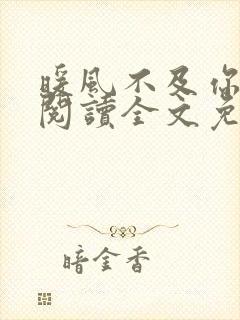 暖風不及你
閱讀全文免
暗金香